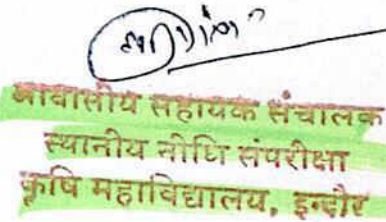 आवासीय सहायक संचालक
स्थानीय नीधि संपरीक्षा
कृषि महाविद्यालय, इन्दौर